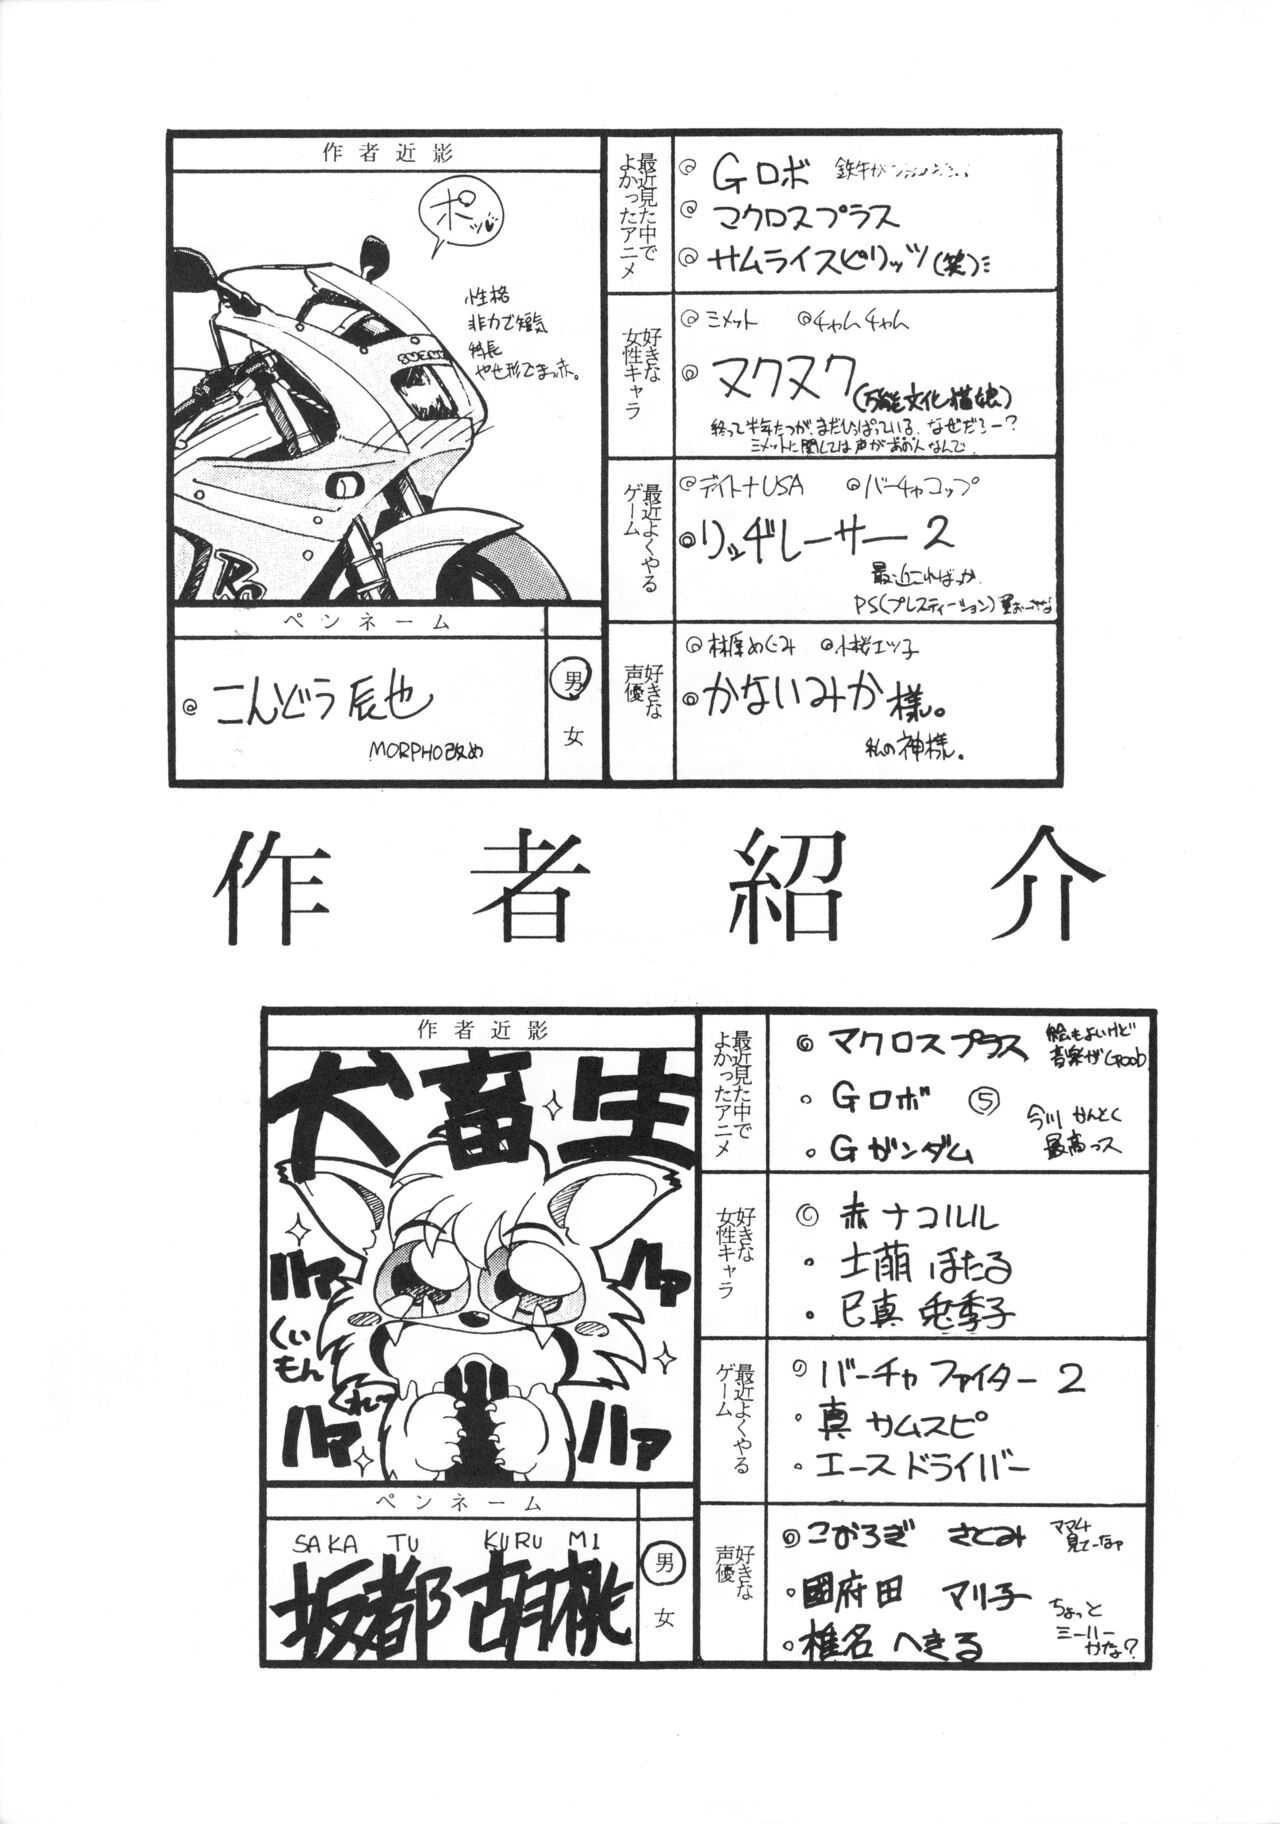 作者近影
ポッ♥
性格
非力で短気
特長
やせ形でまっ赤。
ペンネーム
◎こんどう辰也
MORPHO改め
男
女
最近見た中で
よかったアニメ
◎Gロボ
◎マクロスプラス
◎サムライスピリッツ(笑)
好きな
女性キャラ
◎ミメット ◎チャムチャム
◎ヌクヌク(万能文化猫娘)
終って半年たつがまだひっぱっている。なぜだろー?
ミメットに関しては声があの人なんで。
最近よくやる
ゲーム
◎デイトナUSA ◎バーチャコップ
◎リッヂレーサー2
最近こればっか
PS(プレスティーション)
好きな
声優
◎林原めぐみ ◎小桜エツ子
◎かないみか様。
私の神様。
作者紹介
作者近影
犬畜生
ハァ
ハァ
くいもん
くれっ
ハァ
ハァ
ペンネーム
SAKA TU KURU MI
坂都 胡桃
男
女
最近見た中で
よかったアニメ
◎マクロスプラス
絵もよいけど
音楽がGood
・Gロボ ⑤
・Gガンダム
今川かんとく
最高っス
好きな
女性キャラ
◎赤ナコルル
・土萠ほたる
・巳真兎季子
最近よくやる
ゲーム
◎バーチャファイター2
・真サムスピ
・エースドライバー
好きな
声優
◎こおろぎさとみ
ママ4
見てーなァ
・國府田マリ子
・椎名へきる
ちょっと
ミーハー
かな?